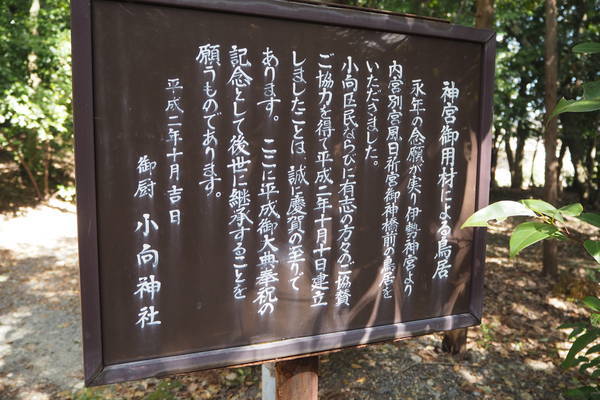 神宮御用材による鳥居
永年の念願が実り伊勢神宮より
内宮別宮風日祈宮御神橋前の鳥居を
いただきました。
小向区民ならびに有志の方々のご協賛
ご協力を得て平成二年十月十日建立
しましたことは、誠に慶賀の至りて
あります。ここに平成御大典奉祝の
記念として後世に継承することを
願うものであります。
平成二年十月吉日
御厨 小向神社